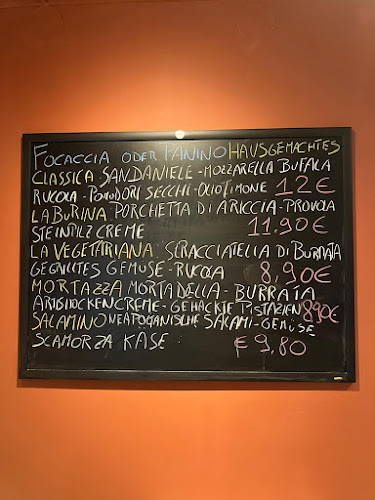 FOCACCIA ODER PANINO HAUSGEMACHTES
CLASSICA - SANDANIELE - MOZZARELLA BUFALA
RUCOLA - POMODORI SECCHI - OLIO TIMONE 12€
LA BURINA PORCHETTA DI ARICCIA - PROVOLA
STEINPILZ CREME 11.90€
LA VEGETARIANA, STRACCIATELLA DI BURRATA
GEGRILLTES GEMÜSE - RUCOLA 8,90€
MORTAZZA MORTADELLA - BURRATA
ARTISHOCKENCREME - GEHACKTE PISTAZIEN 8,90€
SALAMINO NEAPOLITANISCHE SALAMI - GEMÜSE
SCAMORZA KÄSE. € 9,80